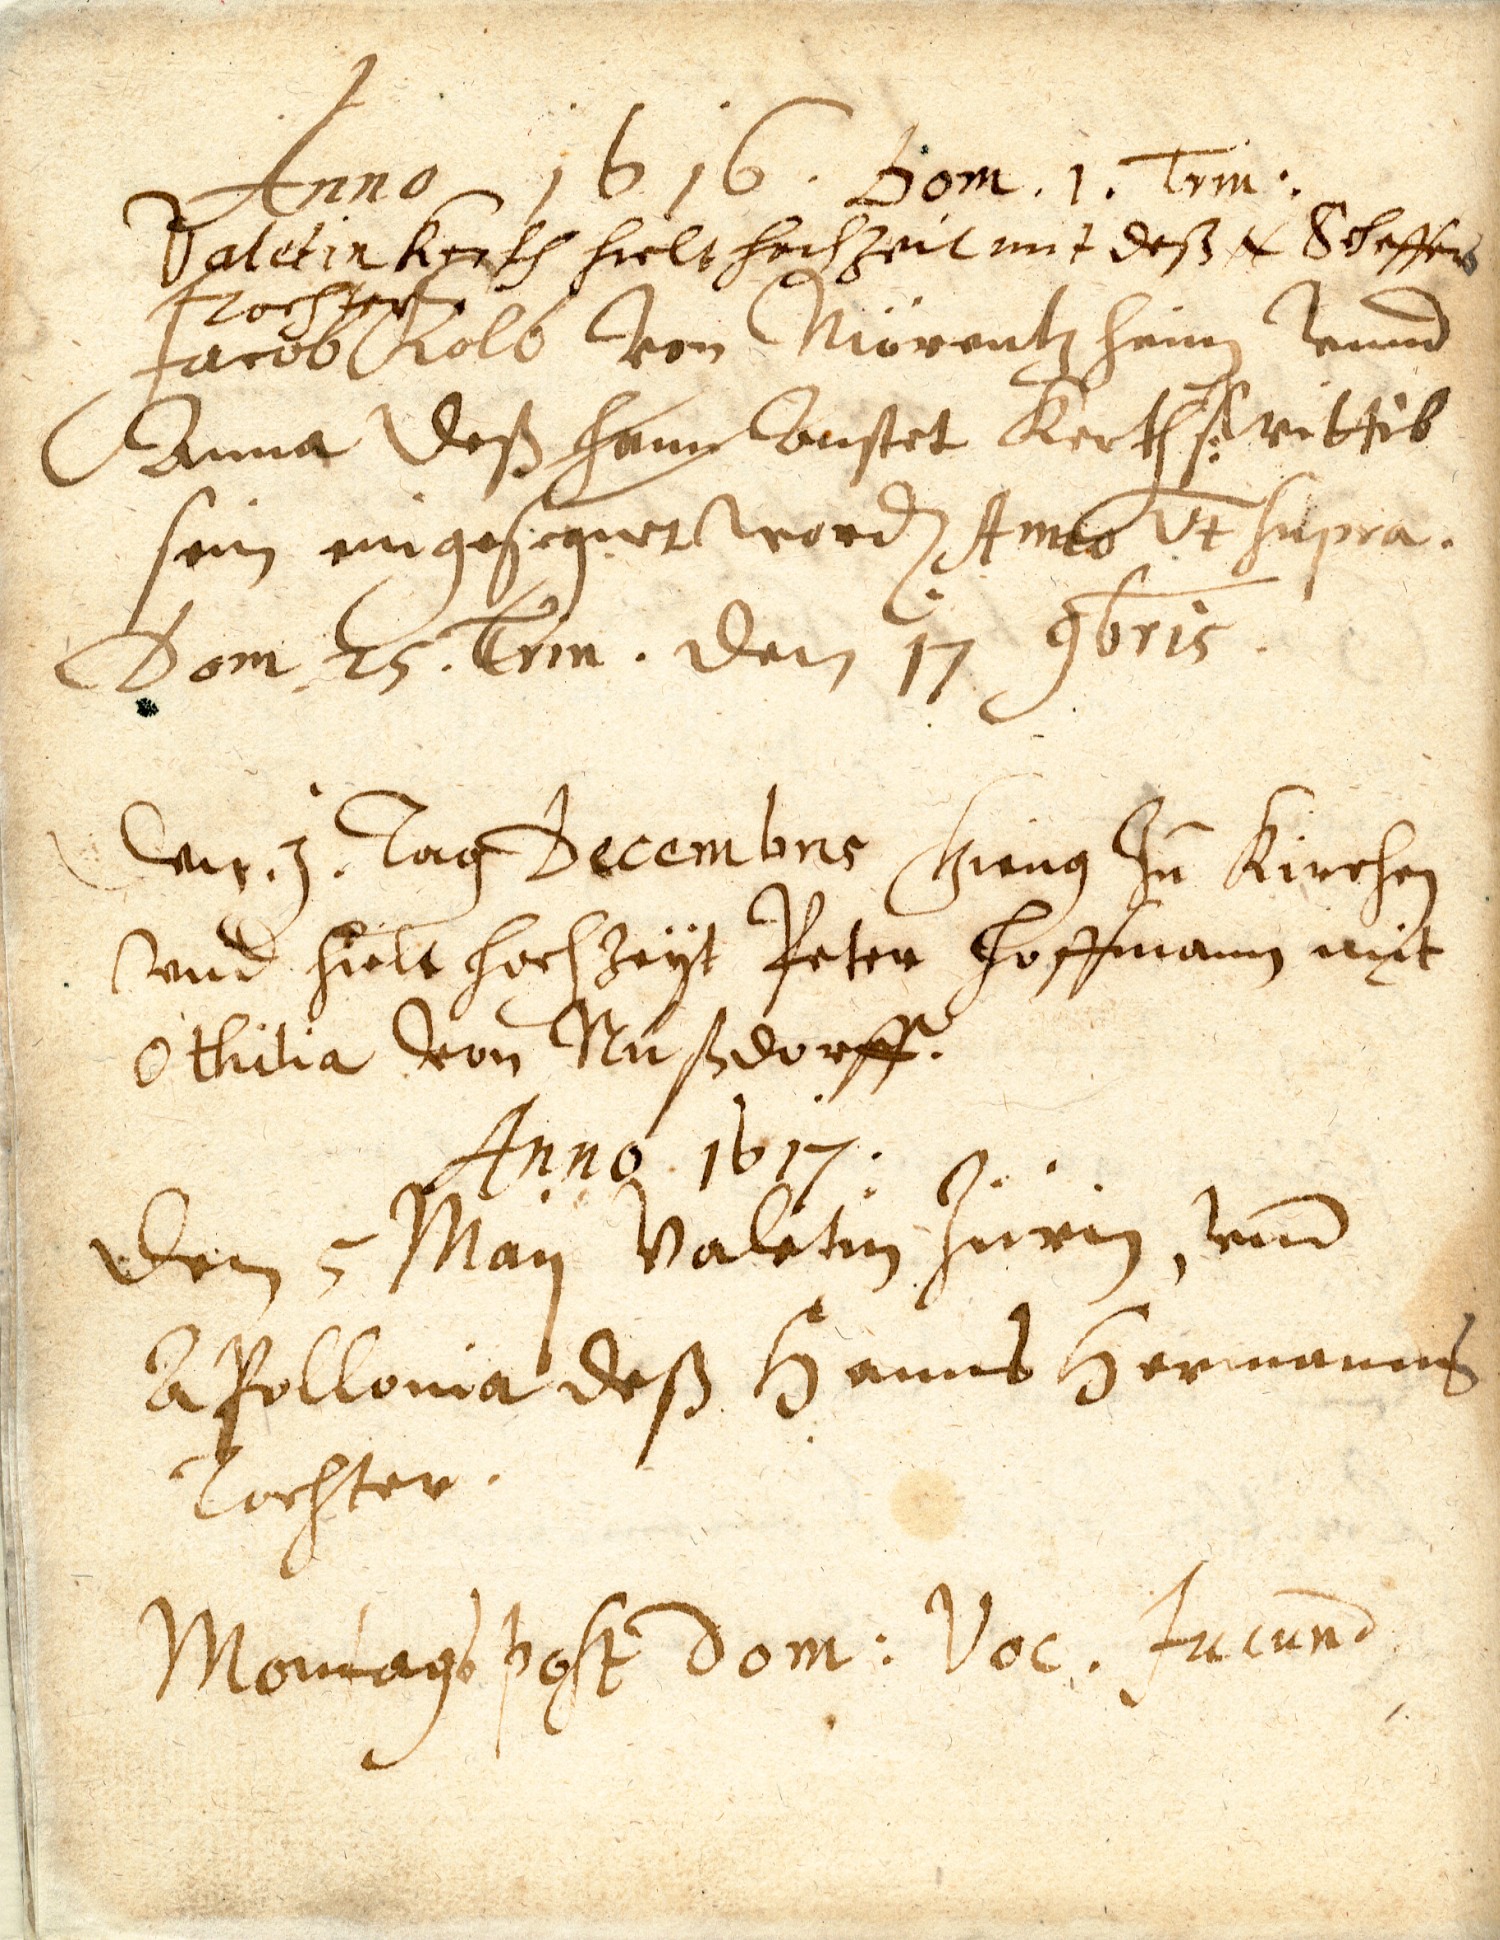 Anno 1616. Dom. 1. Trin:.
Valetin Kerth hielt hochzeit mit deß N Scheffers
Tochter.
Jacob Kolb von Mörentzheim vnnd
Anna deß hann Constet Kerthß wittib
sein eingesegnet word Anno Vt supra.
Dom. 25. Trin. den 17 9bris.
Den. 3. Tag Decembris gieng Zu Kirchen
vnd hielt hochzeyt Peter Hoffmann mit
Othilia von Nußdorff.
Anno. 1617:
Den 5 Maij Valetin Zürn, vnd
Apollonia deß Hanns Hermanns
Tochter.
Montags post Dom: Voc. Jucund